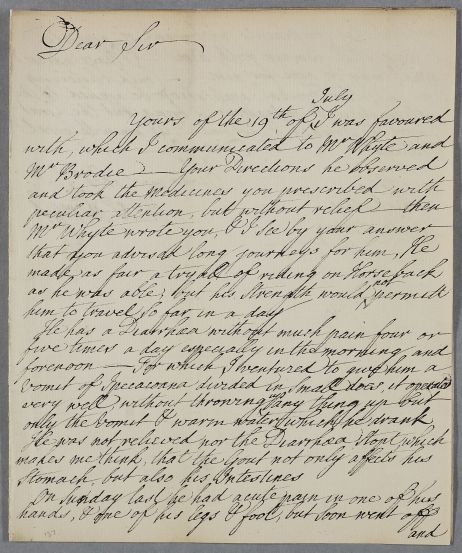 Dear Sir
July
Yours of the 19th of, I was favoured
with, which I communicated to Mr Whyte and
Mr Brodie — Your Directions he observed
and took the Medicines you prescribed with
peculiar attention, but without relief then
Mr Whyte wrote you, & I see by your answer
that you advised long journeys for him, He
made as fair a tryall of riding on Horseback
as he was able; but his strength would not permitt
him to travel so far in a day
He has a Diarrhæa without much pain four or
five times a day especially in the morning and
forenoon — For which I ventured to give him a
vomit of Ipecacoana divided in small doses, it operated
very well without throwing up any thing up but
only the vomit & warm water which he drank
He was not relieved nor the Diarrhæa Stopt which
makes me think, that the Gout not only affects his
Stomach, but also his Intestines
On Sunday last he had acute pain in one of his
hands, & one of his legs & foot, but soon went off
and